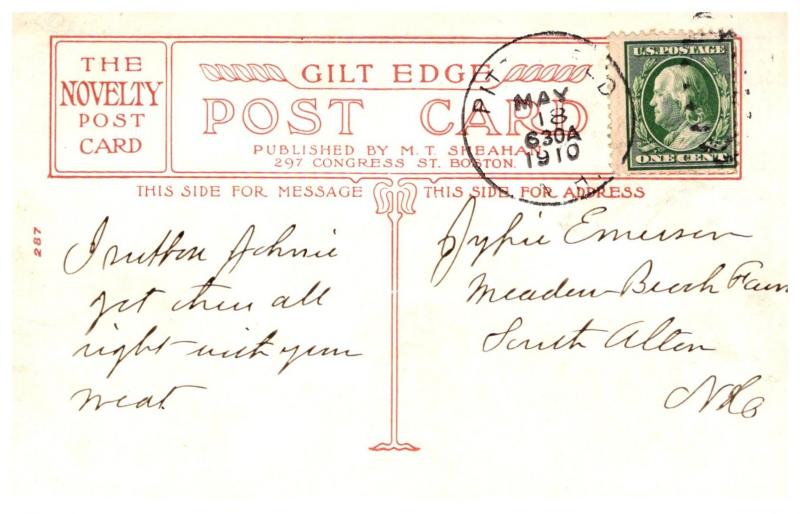 THE
NOVELTY
POST
CARD
GILT EDGE
POST CARD
PUBLISHED BY M. T. SHEAHAN,
297 CONGRESS ST. BOSTON.
PITTSFIELD
MAY
18
630A
1910
N.H.
U.S. POSTAGE
ONE CENT
THIS SIDE FOR MESSAGE
THIS SIDE FOR ADDRESS
287
Johnie
get then all
right with your
meat
Emerson
Meadow Beech Farm
South Alton
N.H.